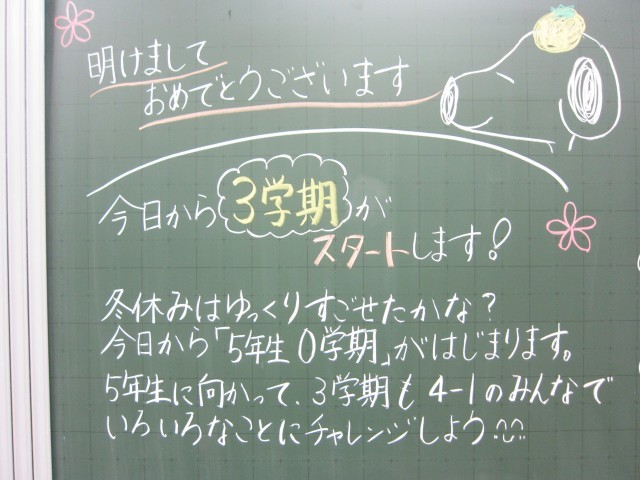 明けまして
おめでとうございます
今日から3学期が
スタートします!
冬休みはゆっくりすごせたかな?
今日から「5年生0学期」がはじまります。
5年生に向かって、3学期も4-1のみんなで
いろいろなことにチャレンジしよう